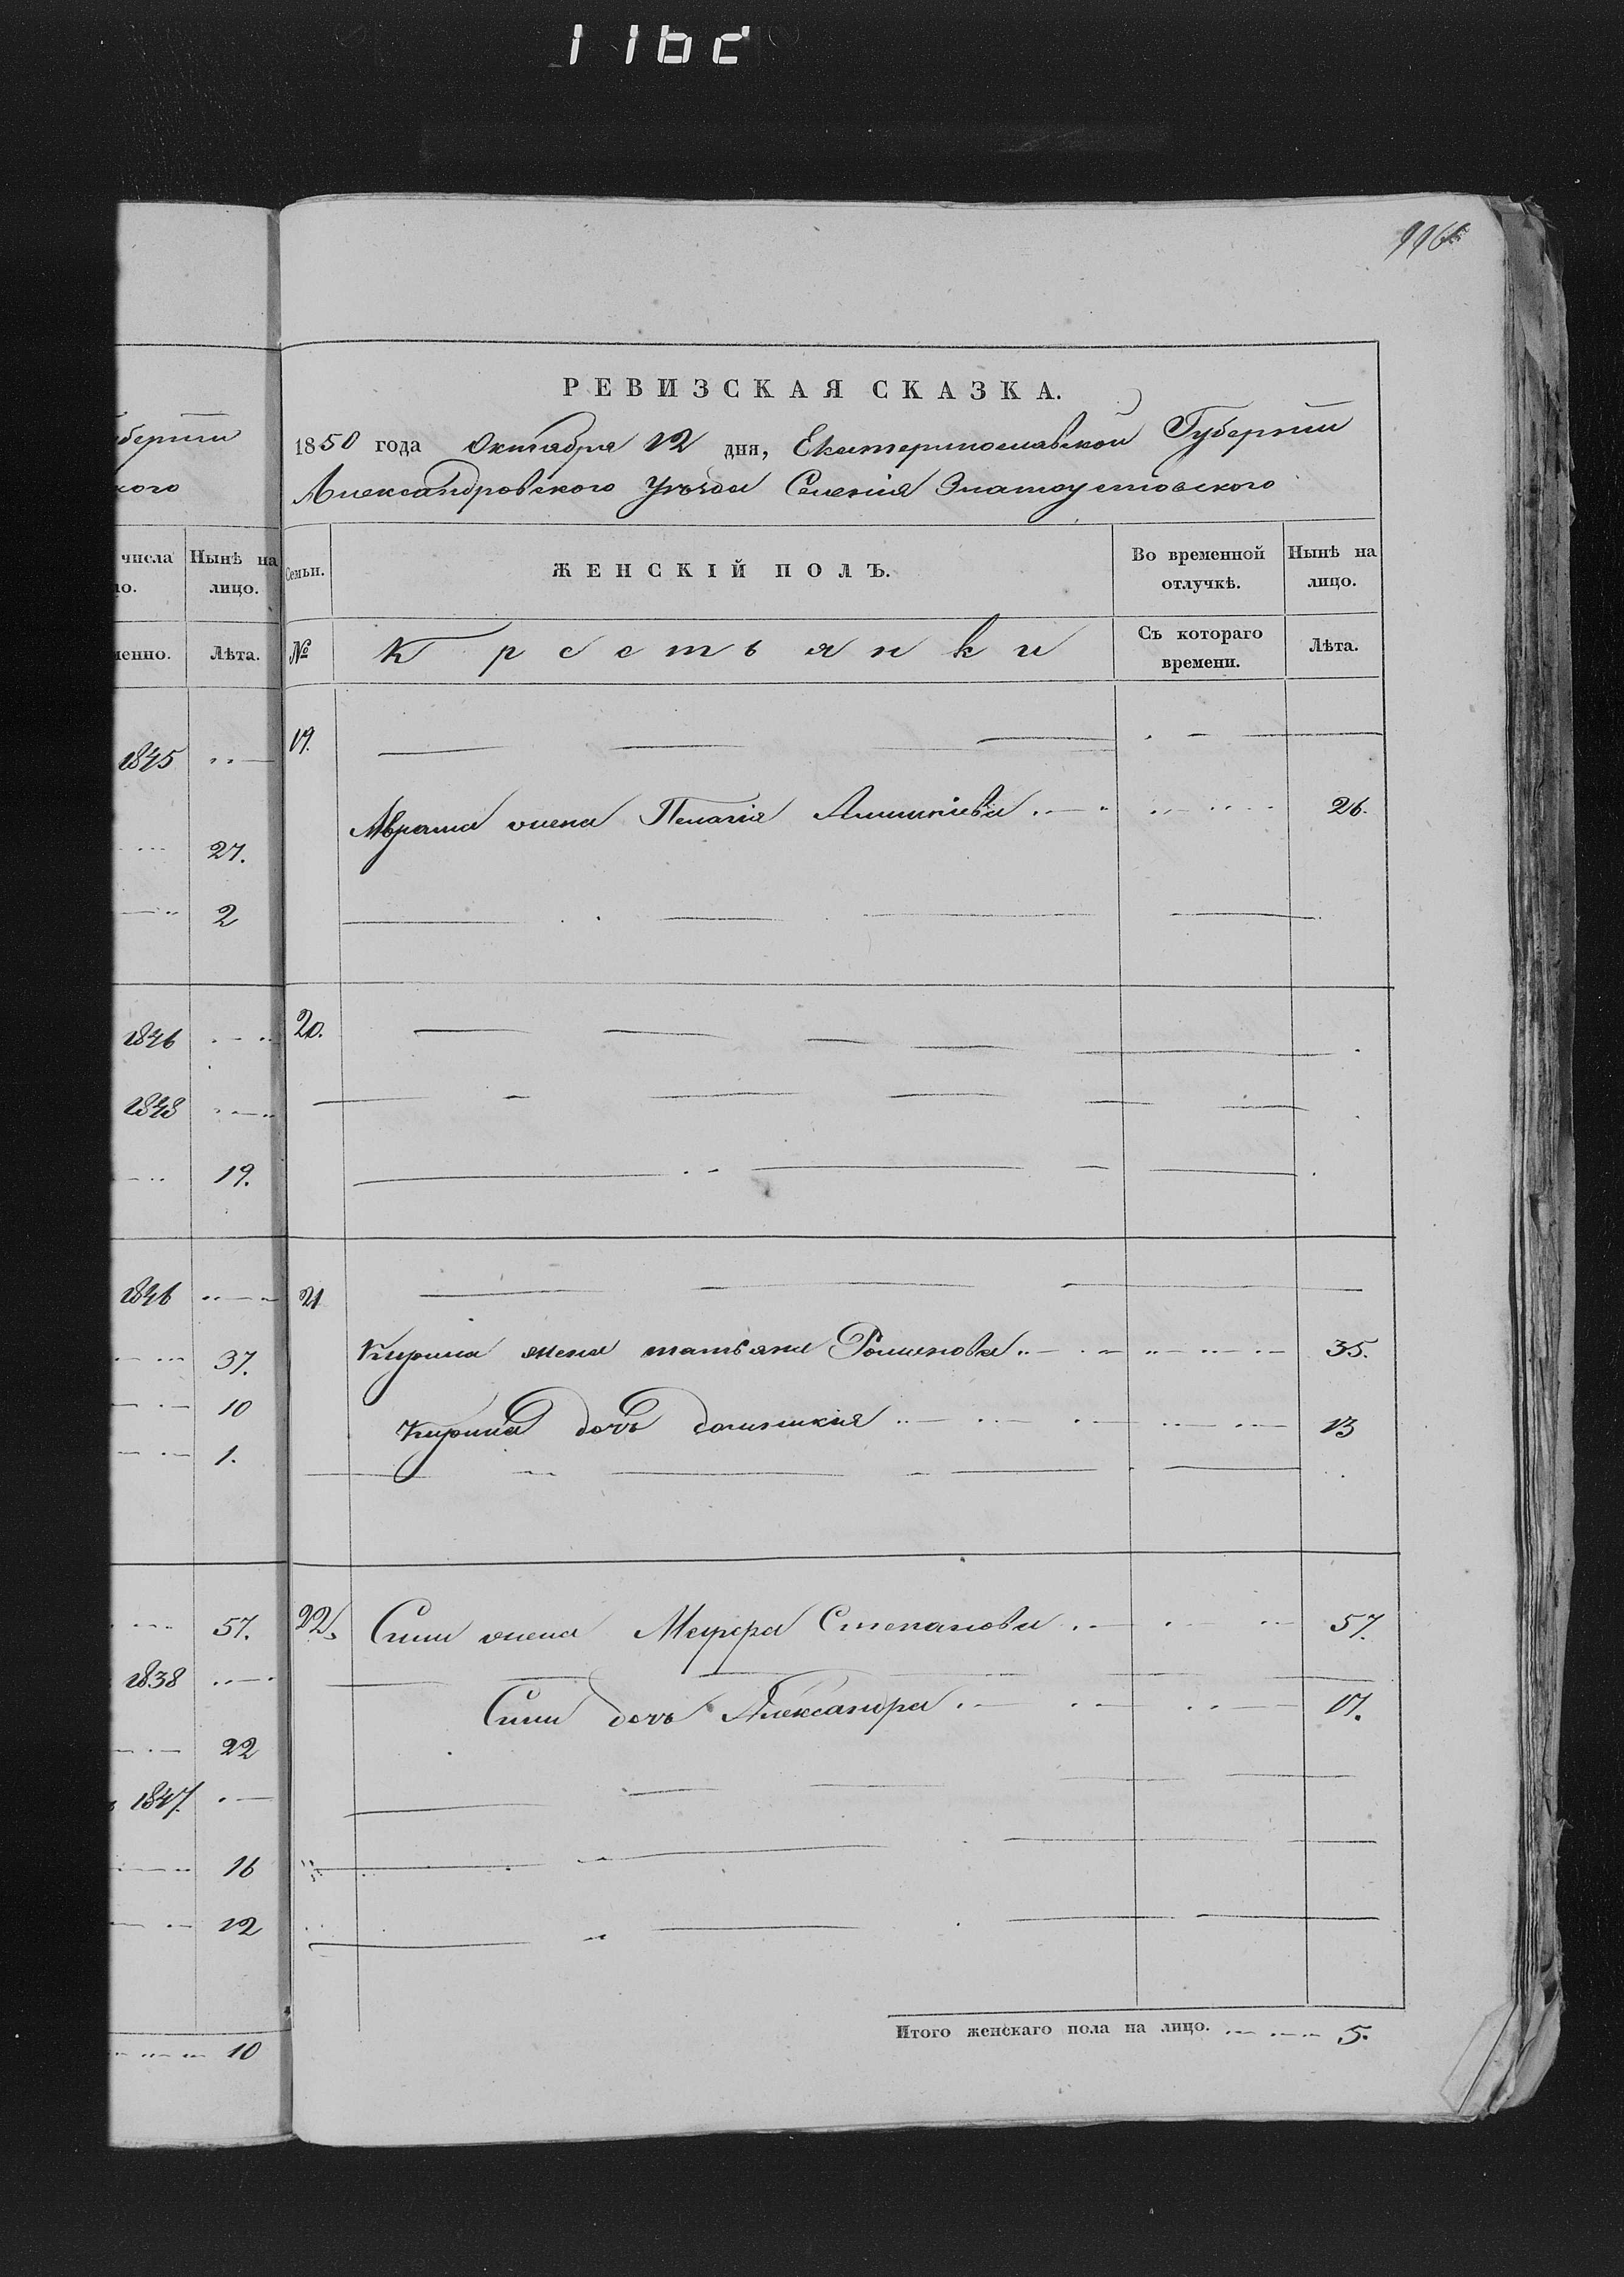 1162
116
РЕВИЗСКАЯ СКАЗКА.
1850 года Октября 12 дня, Екатеринославской Губернии
Александровского Уѣзда Селенія Златоустовского
губернии
кого
числа Нынѣ на лицо.
Лѣта.
Семьи. ЖЕНСКІЙ ПОЛЪ. Во временной отлучкѣ. Нынѣ на лицо.
№ Крестьянки Съ котораго времени. Лѣта.
1845 19.
27. жена Пелагія 26.
2
1846 20.
1848
19.
1846 21
37. Кирила жена татьяна Романова 35.
10 Кирила дочь 13
1.
57. 22. жена Степанова 57.
1838
дочь Александра 17.
22
1847.
16
12
10 Итого женскаго пола на лицо. 5.